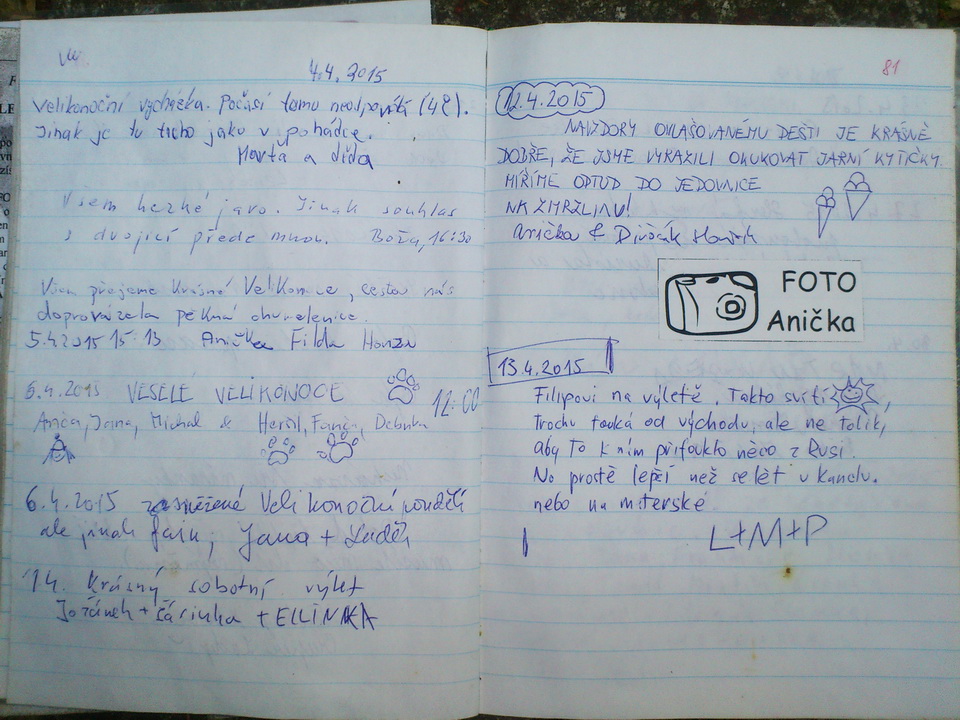 4.4.2015
Velikonoční vycházka. Počasí tomu neodpovídá (4°C).
Jinak je tu ticho jako v pohádce.
Marta a díďa
Všem hezké jaro. Jinak souhlas
s dvojicí přede mnou. Boža, 16:30
Všem přejeme krásné Velikonoce, cestou nás
doprovázela pěkná chumelenice.
5.4.2015 15:13 Anička Filda Honza
5.4.2015 VESELÉ VELIKONOCE 12:00
Anča, Jana, Michal &
6.4.2015 zasněžené Velikonoční pondělí
ale jinak fajn, Jana + Luděk
Krásný sobotní výlet
+ Šárinka + ELLINKA
81
12.4.2015
NAVZDORY OHLAŠOVANÉMU DEŠTI JE KRÁSNĚ
DOBŘE, ŽE JSME VYRAZILI OKUKOVAT JARNÍ KYTIČKY.
MÍŘÍME ODTUD DO JEDOVNICE
NA ZMRZLINU!
Anička &
FOTO
Anička
13.4.2015
Filipovi na výletě. Takto svítí ,
Trochu fouká od východu, ale ne tolik,
aby to k nim přifouklo něco z Rusi.
No prostě lepší než sedět v kanclu.
nebo na mateřské.
L+M+P